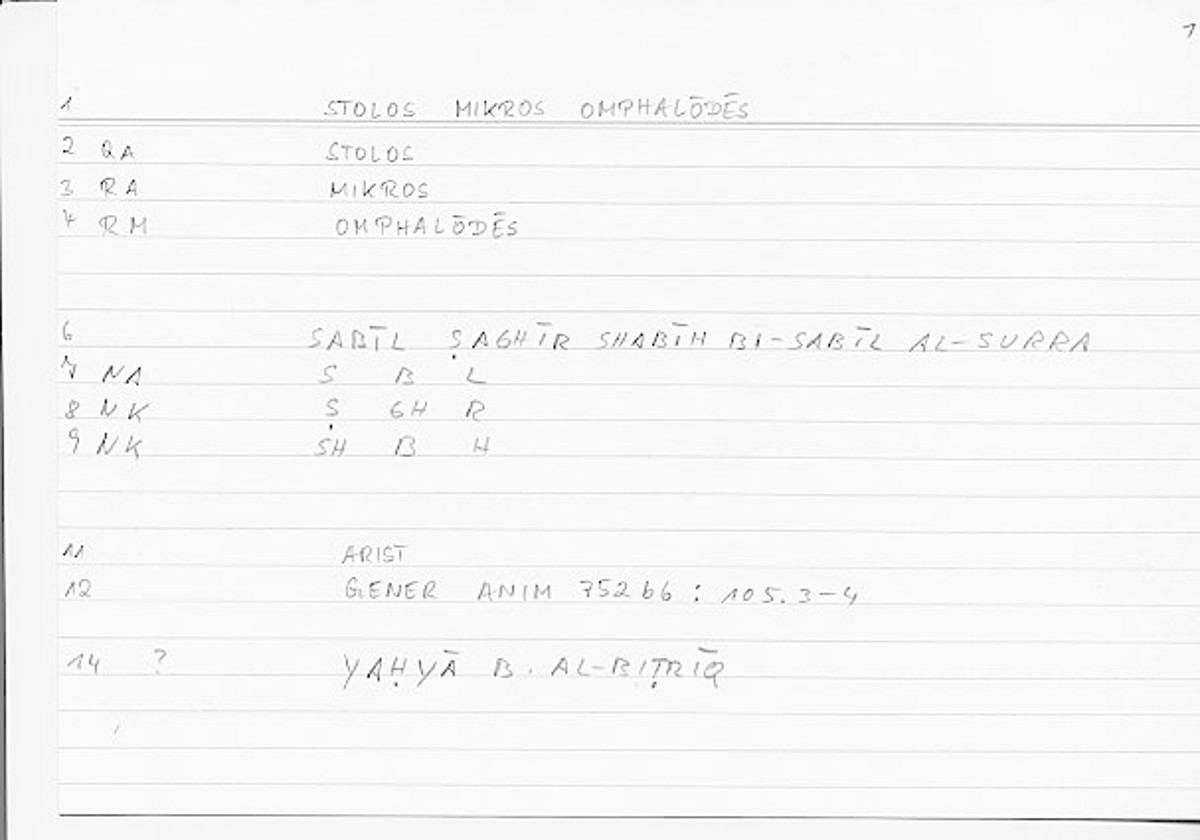 1
1 STOLOS MIKROS OMPHALŌDĒS
2 QA STOLOS
3 RA MIKROS
4 RM OMPHALŌDĒS
6 SABĪL ṢAGHĪR SHABĪH BI-SABĪL AL-SURRA
7 NA S B L
8 NK Ṣ GH R
9 NK SH B H
11 ARIST
12 GENER ANIM 752b6 : 105.3-4
14 ? YAḤYĀ B. AL-BIṬRĪQ